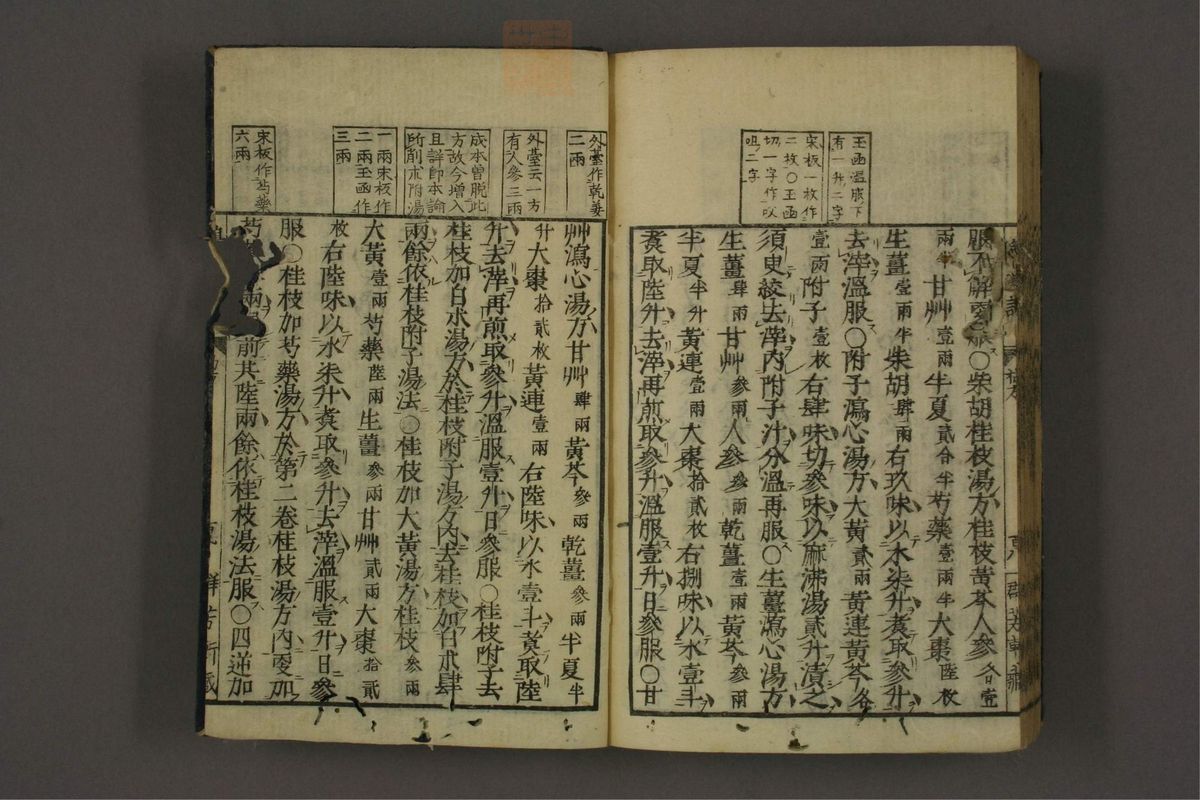 玉函溫服下
有一升二字
宋板一枚作
二枚〇玉函
切一字作㕮
咀二字
服不解
〇柴胡桂枝湯方桂枝黃芩人參各壹
兩半甘艸壹兩半夏貳合半芍藥壹兩半大棗陸枚
生薑壹兩半柴胡肆兩右玖味以水柒升煑取參升
去滓溫服〇附子瀉心湯方大黃貳兩黃連黃芩各
壹兩附子壹枚右肆味切參味以麻沸湯貳升漬之
須臾絞去滓内附子汁分溫再服〇生薑瀉心湯方
生薑肆兩甘艸參兩人參參兩乾薑壹兩黃芩參兩
半夏半升黃連壹兩大棗拾貳枚右捌味以水壹斗
煑取陸升去滓再煎取參升溫服壹升日參服〇甘
外臺作乾姜
二兩
外臺云一方
有人參三兩
成本曾脫此
方故今增入
且詳即本論
所削朮附湯
一兩宋板作
二兩玉函作
三兩
宋板作芍藥
六兩
艸瀉心湯方甘艸肆兩黃芩參兩乾薑參兩半夏半
升大棗拾貳枚黃連壹兩右陸味以水壹斗煑取陸
升去滓再煎取參升溫服壹升日參服〇桂枝附子去
桂枝加白朮湯方於桂枝附子湯方内去桂枝加白朮肆
兩餘依桂枝附子湯法〇桂枝加大黃湯方桂枝參兩
大黃壹兩芍藥陸兩生薑參兩甘艸貳兩大棗拾貳
枚右陸味以水柒升煑取參升去滓溫服壹升日參
服〇桂枝加芍藥湯方於第二卷桂枝湯方内更加
芍
兩
前共陸兩餘依桂枝湯法服〇四逆加